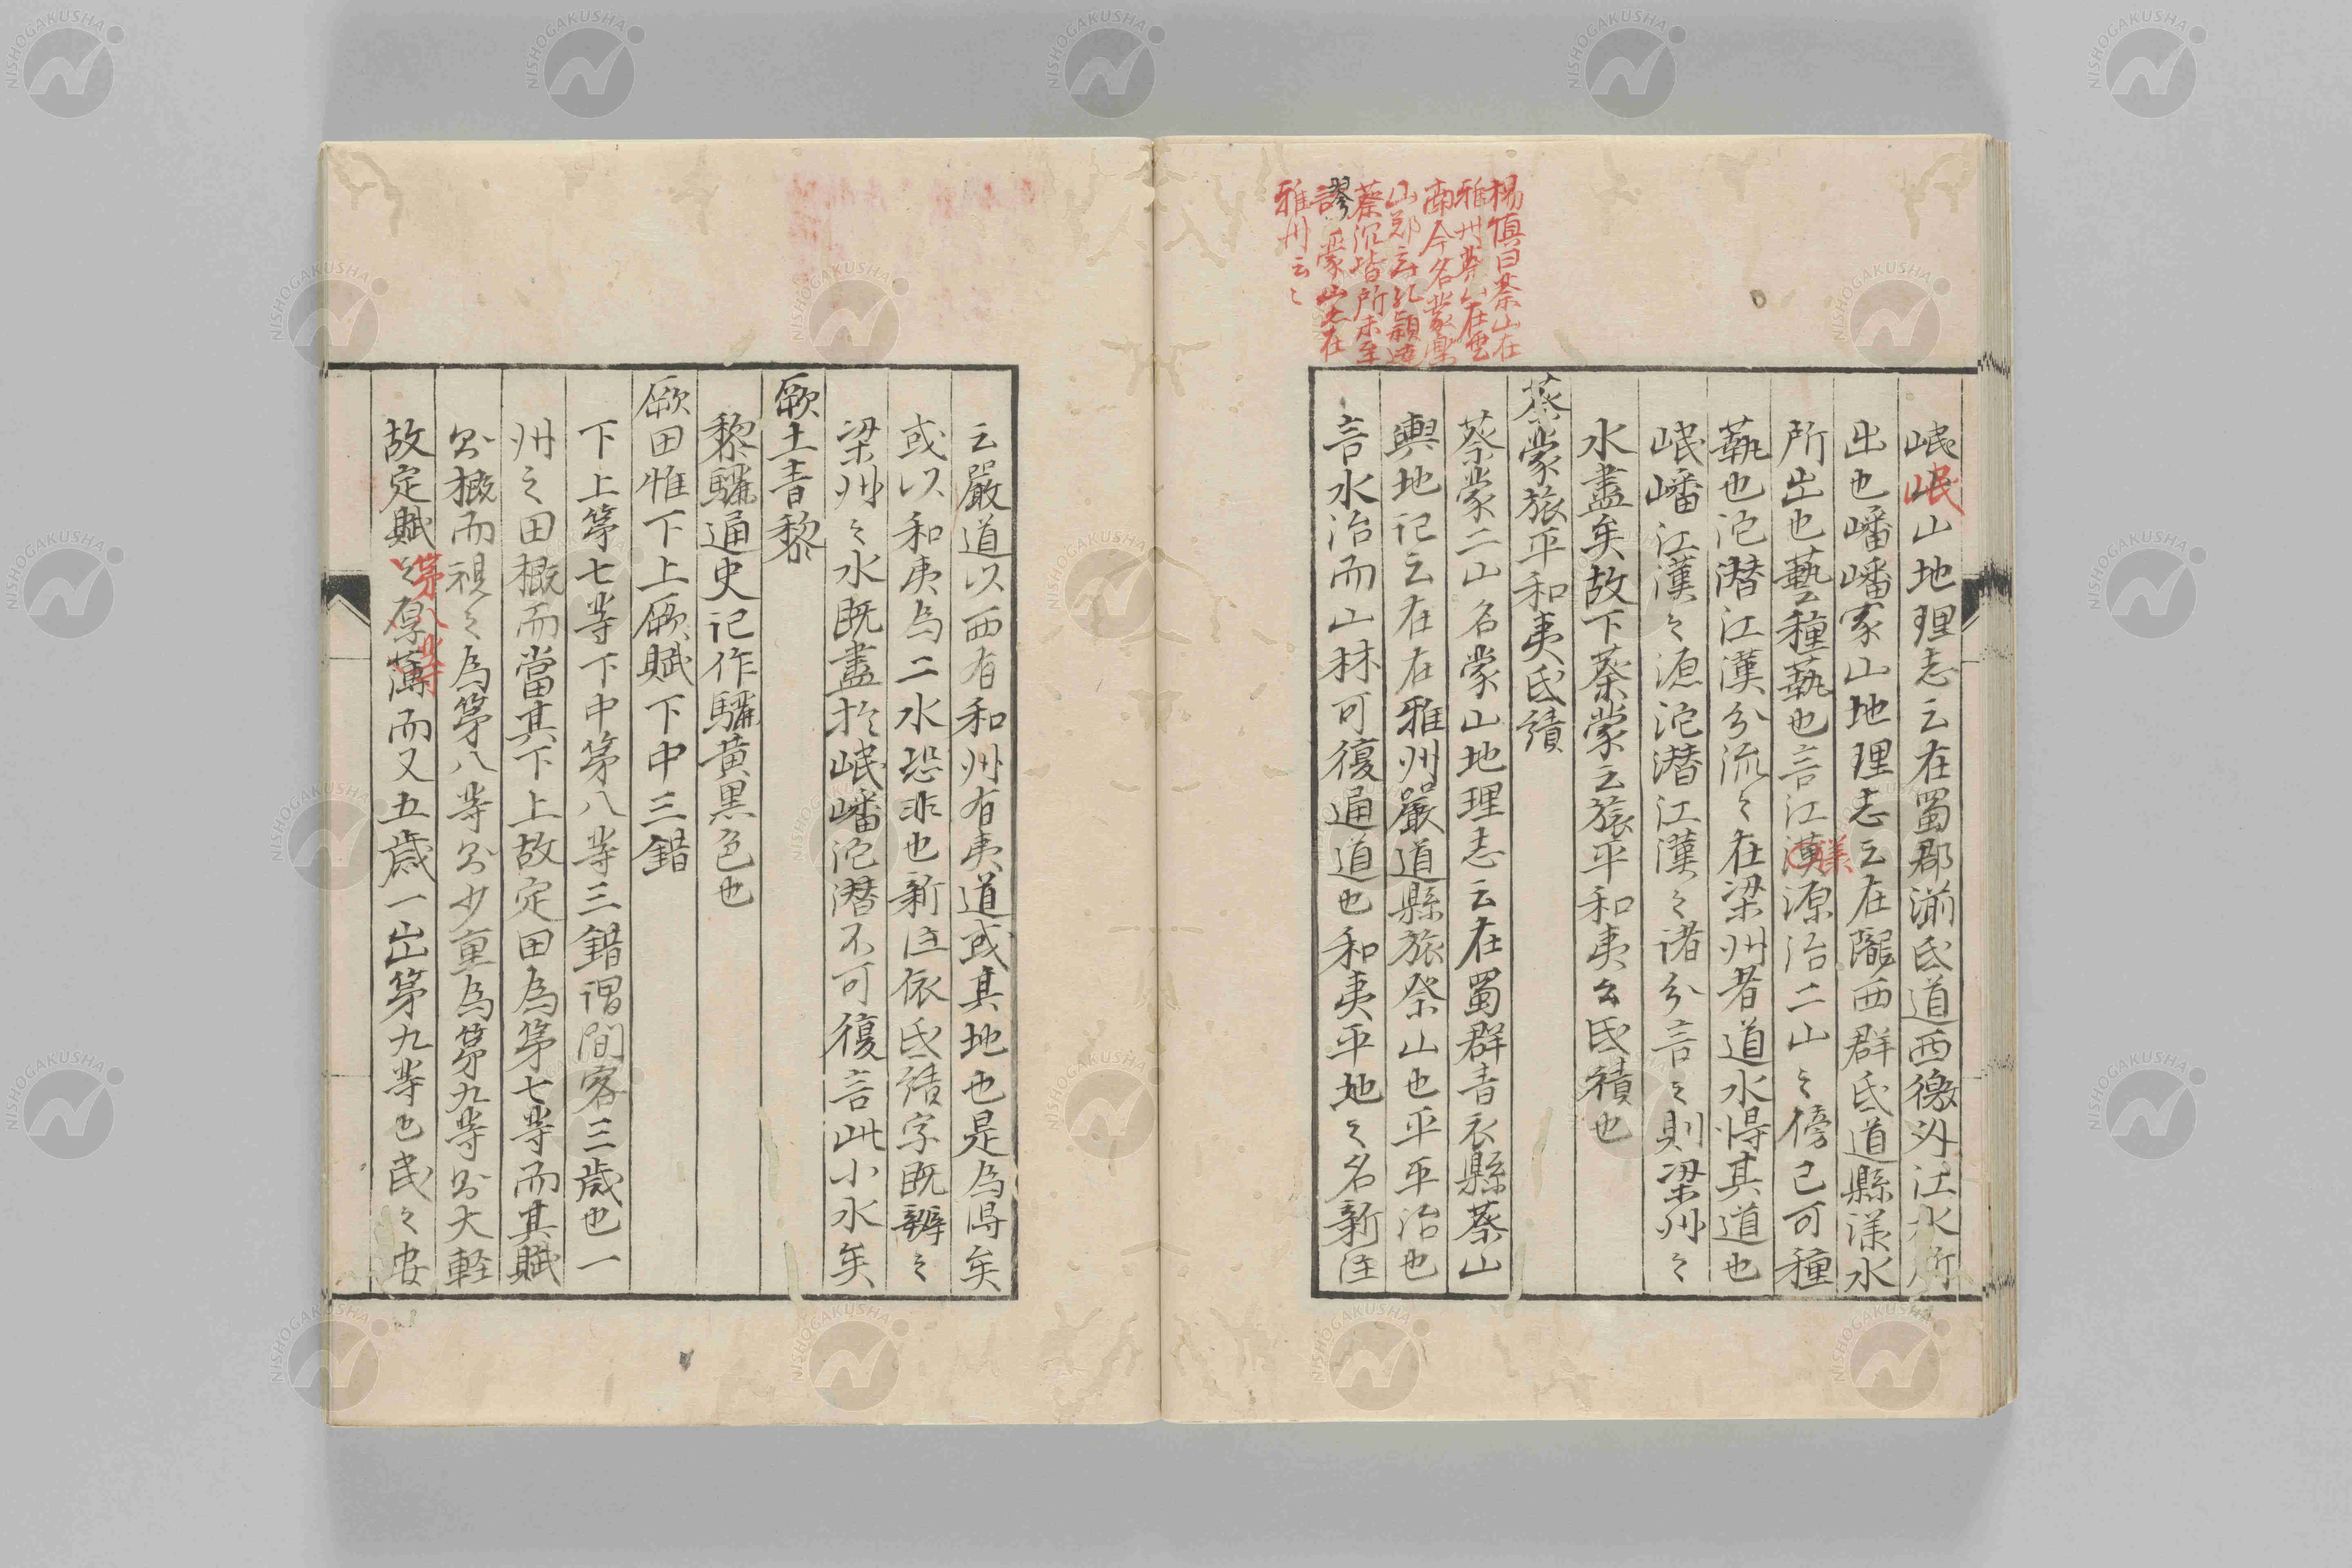 楊慎曰蔡山在
雅州蒙山在雲
南今名蒙樂
山鄭玄孔穎達
蔡沉皆所未至
謬 蒙山尤在
雅州云〻
岷岷山地理志云在蜀郡湔氐道西徼外江水所
出也嶓嶓冢山地理志云在隴西群氐道縣漾水
所出也藝種蓺也言江漢漾源治二山之傍已可種
蓺也沱潜江漢分流〻在梁州者道水得其道也
岷嶓江漢之源沱潜江漢之諸分言之則梁州之
水盡矣故下蔡蒙云旅平和夷云氐績也
蔡蒙旅平和夷氐績
蔡蒙二山名蒙山地理志云在蜀群青衣縣蔡山
輿地記云在在雅州嚴道縣旅祭山也平平治也
言水治而山林可復通道也和夷平地之名新注
云嚴道以西有和州有夷道或其地也是為得矣
或以和夷為二水恐非也新注依氐績字既辨之
梁州之水既盡於岷嶓沱潜不可復言此小水矣
厥土青黎
黎驪通史記作驪黄黒色也
厥田惟下上厥賦下中三錯
下上第七等下中第八等三錯謂間客三歳也一
州之田概而當其下上故定田為第七等而其賦
則概而視之為第八等則少重為第九等則大軽
故定賦第八等之厚薄而又五歳一出第九等也民之安